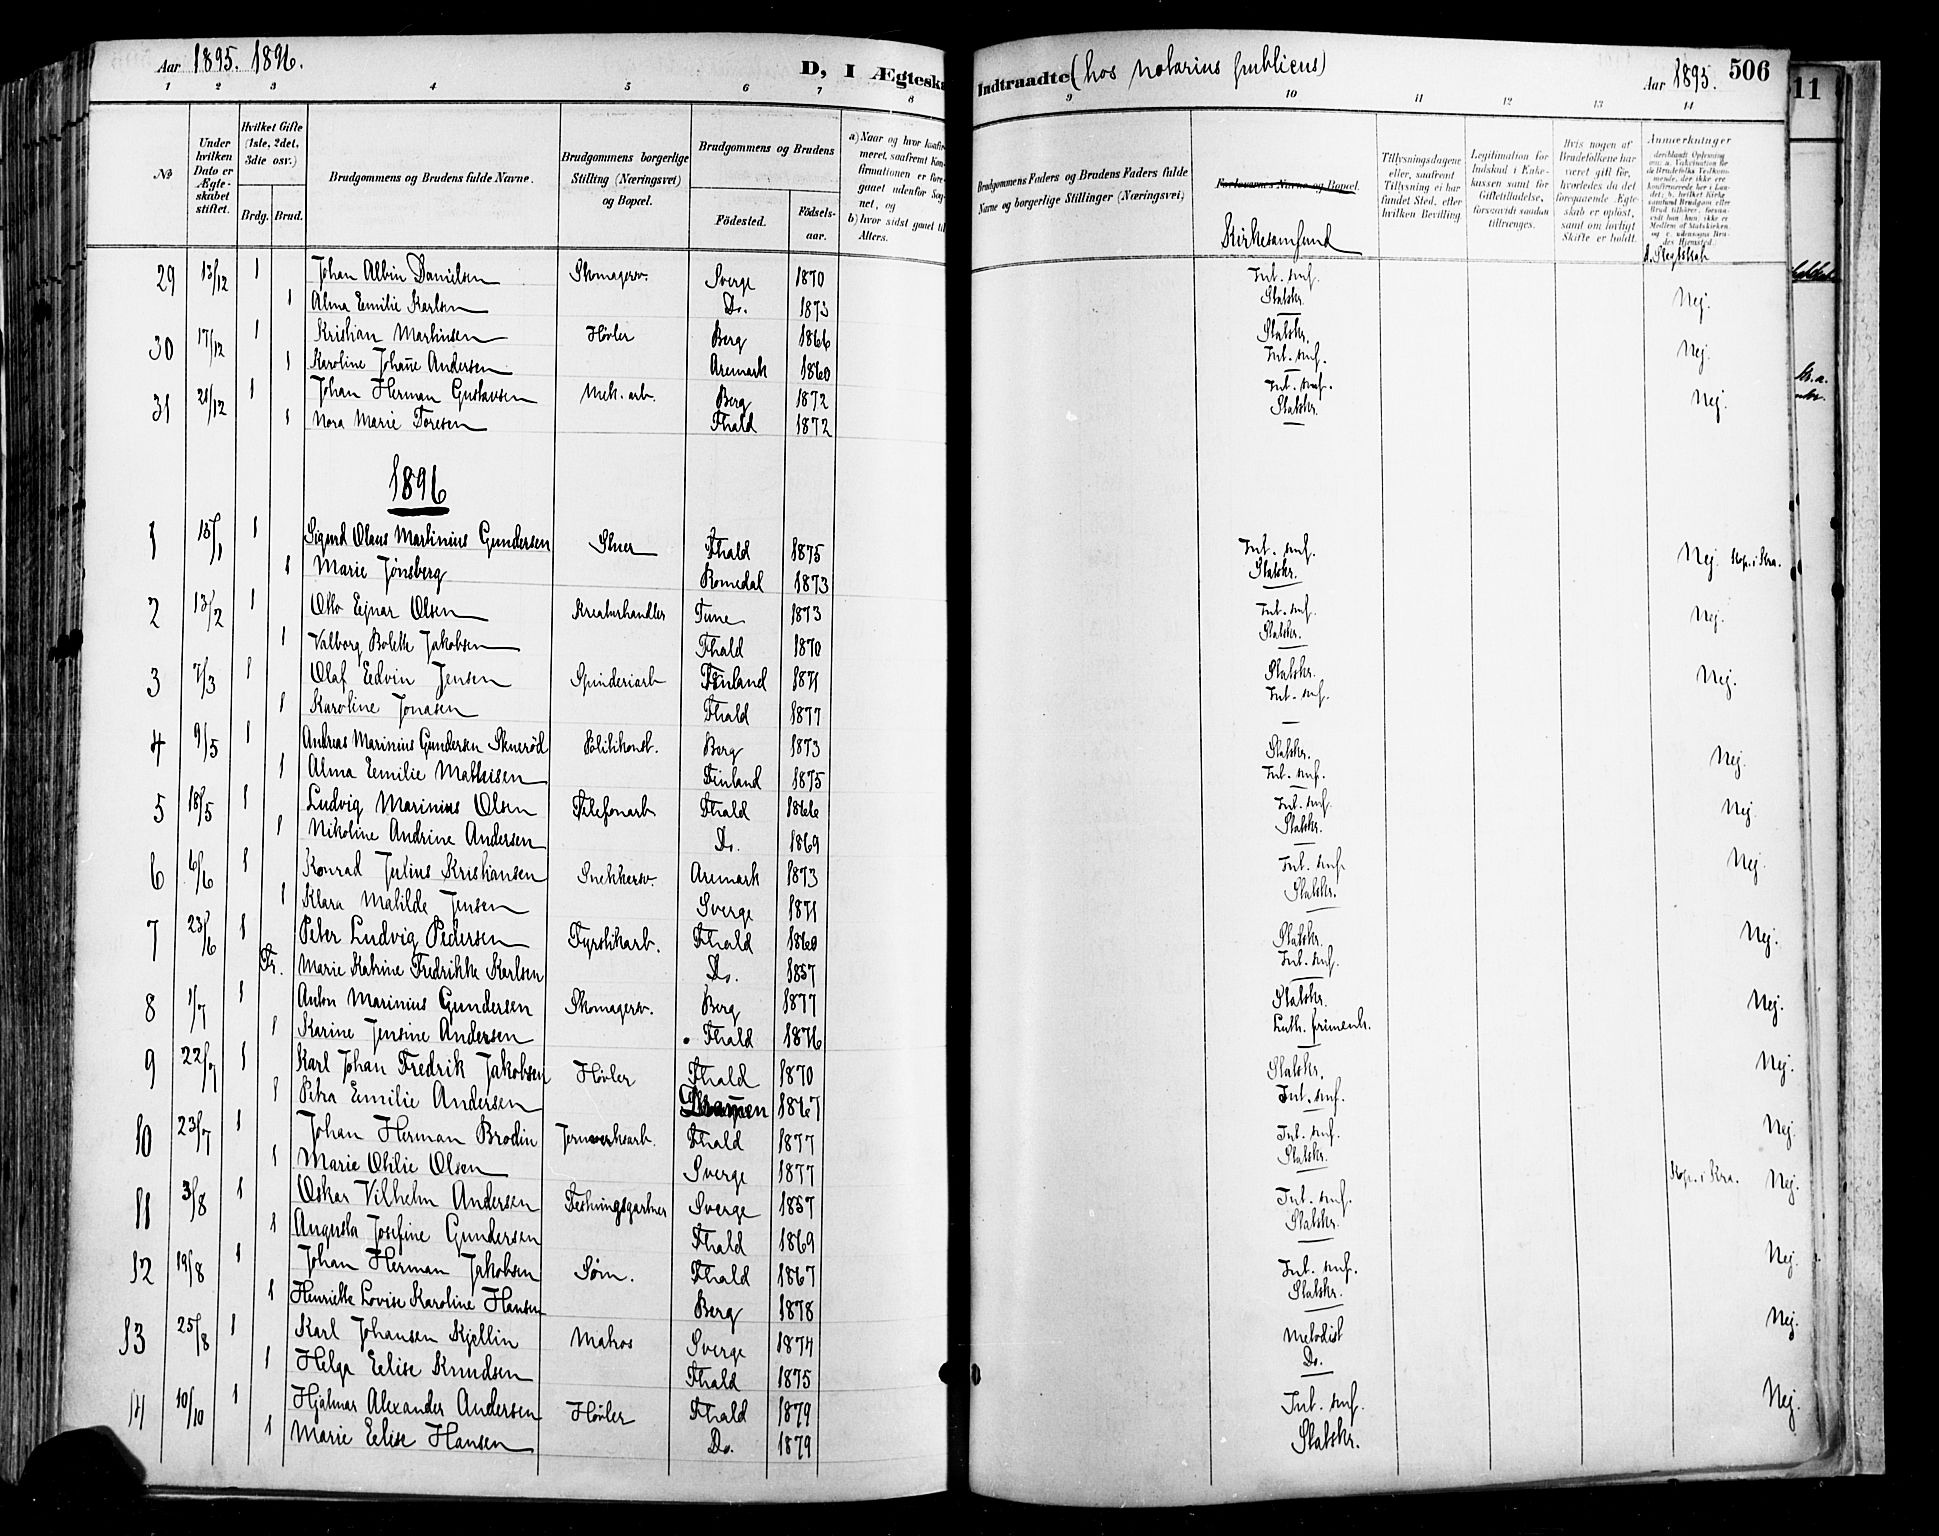 Aar 1895. 1896.
D, I Ægteska
Indtraadte (hos notarius publicus)
Aar 1895.
506
11
1 2 3 4 5 6 7 8 9 10 11 12 13 14
No
Under hvilken Dato er Ægteskabet stiftet.
Hvilket Gifte (1ste, 2det, 3die osv.)
Brdg. Brud.
Brudgommens og Brudens fulde Navne.
Brudgommens borgerlige Stilling (Næringsvei) og Bopæl.
Brudgommens og Brudens
Fødested.
Fødsels-aar.
a) Naar og hvor konfir-
meret, saafremt Kon-
firmationen er fore-
gaaet udenfor Sog-
net, og
b) hvor sidst gaaet til
Alters.
Brudgommens Faders og Brudens Faders fulde
Navne og borgerlige Stillinger (Næringsvei)
Forlovernes Navne og Bopæl.
Kirkesamfund
Tillysningsdagene
eller, saafremt
Tillysning ei har
fundet Sted, efter
hvilken Bevilling.
Legitimation for
Indskud i Enke-
kassen samt for
Giftetilladelse,
forsaavidt saadan
tiltrænges.
Hvis nogen af
Brudefolkene har
været gift før,
hvorledes da det
foregaaende Ægte-
skab er opløst,
samt om lovligt
Skifte er holdt.
Anmærkninger
d. Slegtskab
29 13/12 1 Johan Albin Danielsen Skomagersv. Sverge 1870 Int. smf.
1 Alma Emilie Karlsen Do. 1873 Statskr. Nej.
30 17/12 1 Kristian Martinsen Høvler Berg 1866 Statskr.
1 Karoline Johanne Andersen Aremark 1860 Int. smf. Nej.
31 21/12 1 Johan Herman Gustavsen Mek. arb. Berg 1872 Int. smf.
1 Nora Marie Toresen Fhald 1872 Statskr. Nej.
1896
1 13/1 1 Sigurd Olaus Martinius Gundersen Stuer Fhald 1875 Int. smf.
1 Marie Jønsberg Romedal 1873 Statskr. Nej. Kop. i Kra.
2 13/2 1 Otto Ejnar Olsen Kreaturhandler Tune 1873 Int. smf.
1 Valborg Bolette Jakobsen Fhald 1870 Statskr. Nej.
3 7/3 1 Olaf Edvin Jensen Spinderiarb Finland 1871 Statskr.
1 Karoline Jonasen Fhald 1877 Int. smf. Nej.
4 9/5 1 Andreas Marinius Gundersen Skuerød Politikonst. Berg 1873 Statskr.
1 Alma Emilie Mathisen Finland 1875 Int. smf. Nej.
5 18/5 1 Ludvig Marinius Olsen Telefonarb Fhald 1866 Int. smf.
1 Nikoline Andrine Andersen Do. 1869 Statskr. Nej.
6 6/6 1 Konrad Julius Kristiansen Snekkersv. Aremark 1873 Int. smf.
1 Klara Matilde Jensen Sverge 1871 Statskr. Nej.
7 23/6 1 Peter Ludvig Pedersen Fyrstikarb. Fhald 1860 Statskr.
Fr. Marie Katrine Fredrikke Karlsen Do. 1857 Int. smf. Nej.
8 1/7 1 Anton Marinius Gundersen Skomagersv. Berg 1877 Statskr.
1 Karine Jensine Andersen Fhald 1876 Luth. frimenh. Nej.
9 22/7 1 Karl Johan Fredrik Jakobsen Høvler Fhald 1870 Statskr.
1 Petra Emilie Andersen 1867 Int. smf. Nej.
10 23/7 1 Johan Herman Brodin Jernverksarb. Fhald 1877 Int. smf.
1 Marie Otilie Olsen Sverge 1877 Statskr. Nej.
11 3/8 1 Oskar Vilhelm Andersen Festningsgartner Sverge 1857 Int. smf. Kop. i Kra. Nej.
1 Augusta Josefine Gundersen Fhald 1869 Statskr.
12 19/8 1 Johan Herman Jakobsen Søm. Fhald 1867 Int. smf. Nej.
1 Henriette Lovise Karoline Hansen Berg 1878 Statskr.
13 25/8 1 Karl Johansen Kjellin Matros Sverge 1874 Metodist Nej.
1 Helga Elise Knudsen Fhald 1875 Do.
14 10/10 1 Hjalmar Alexander Andersen Høvler Fhald 1879 Int. smf. Nej.
1 Marie Elise Hansen Do. 1879 Statskr.